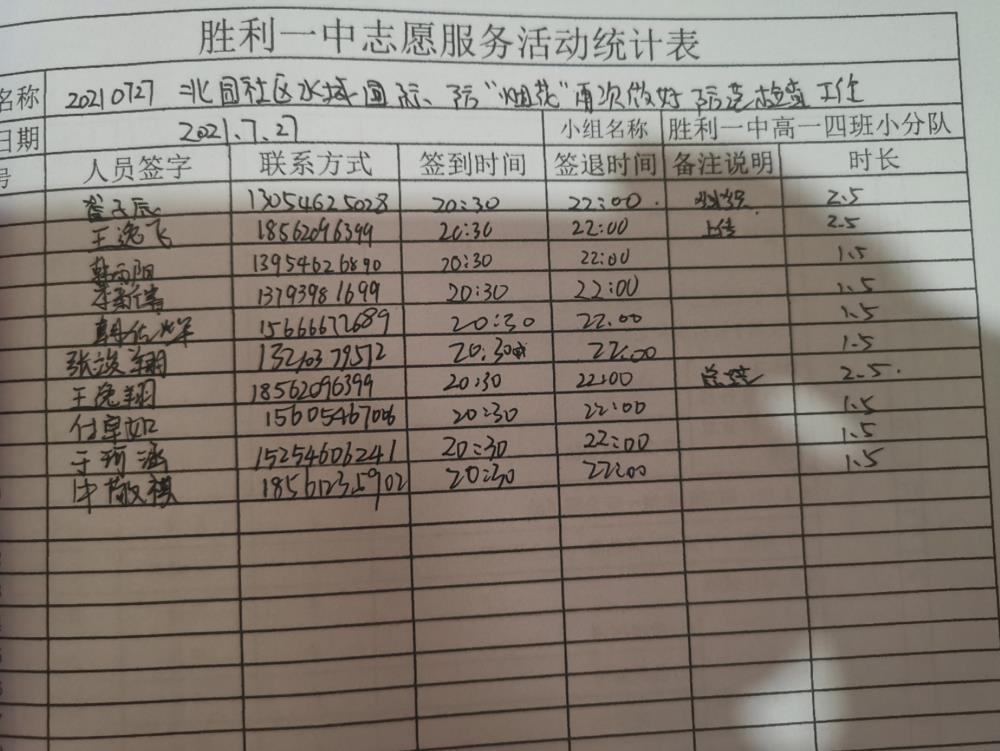 胜利一中志愿服务活动统计表
名称 20210727 北园社区水域图标、防“烟花”再次做好防范检查工作
日期 2021.7.27 小组名称 胜利一中高一四班小分队
号 人员签字 联系方式 签到时间 签退时间 备注说明 时长
翟子辰 13054625028 20:30 22:00. 2.5
王逸飞 18562096399 20:30 22:00 上传 2.5
韩雨阳 13954626890 20:30 22:00 1.5
李新 13793981699 20:30 22:00 1.5
韩佐烨 15666672689 20:30 22.00 1.5
张竣翔 20:30 22:00 1.5
王逸翔 18562096399 20:30 22:00 总结 2.5.
付卓如 15605467006 20:30 22:00 1.5
于珂涵 15254606241 20:30 22:00 1.5
敬祺 18561235902 20:30 22:00 1.5